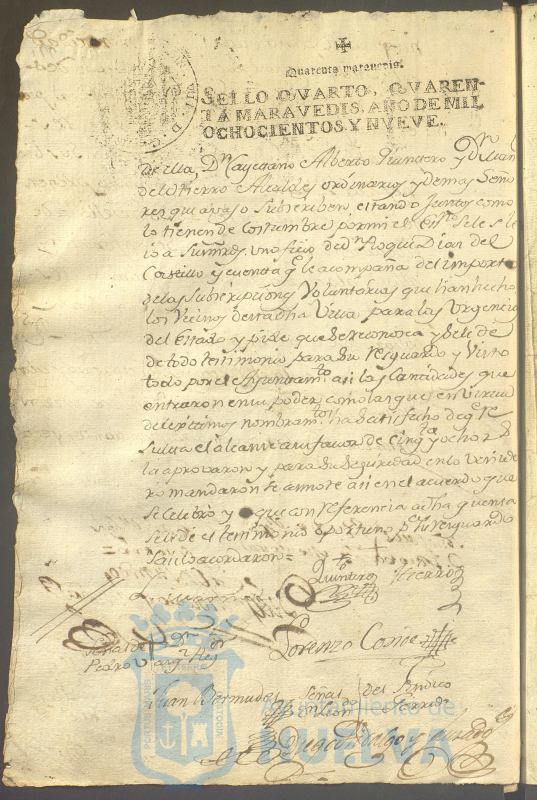 Quarenta maravedis.
SELLO QVARTO, QVAREN-
TA MARAVEDIS, AÑO DE MIL
OCHOCIENTOS Y NVEVE.
de ella, Dn Cayetano Alberto Quintero y Dn Juan
del Hierro Alcaldes ordinarios y demas Seño
res que avaxo Subscriben, estando juntos como
lo tienen de costumbre por mi el Essno se le
io a sus mrds. un oficio de dn Roque Dias del
Castillo y cuenta qe le acompaña del importe
de las Subscripciones Voluntarias que han hecho
los Vecinos de esta dha Villa para las Urgencias
del Estado y pide que se reconosca y se le dé
de todo testimonio para su resguardo y Visto
todo por el Ayuntamto asi las Cantidades que
entraron en su poder, como las que en virtud
de legitimos nombramtos ha satisfecho de qe re
sulta el alcance a su favor de cinqta y ocho rs
la aprovaron y para su seguridad en lo venide
ro mandaron se anote asi en el acuerdo que
se celebró y que con referencia a dha quenta
se le dé el testimonio oportuno pa su resguardo
asi lo acordaron =
Quintero Hierro
Lorenzo Conde
Señal de Dn
Pedro
Juan Bermudez
Señal del Sindico
Diego Hidalgo y
Ayuntamiento de
HUELVA